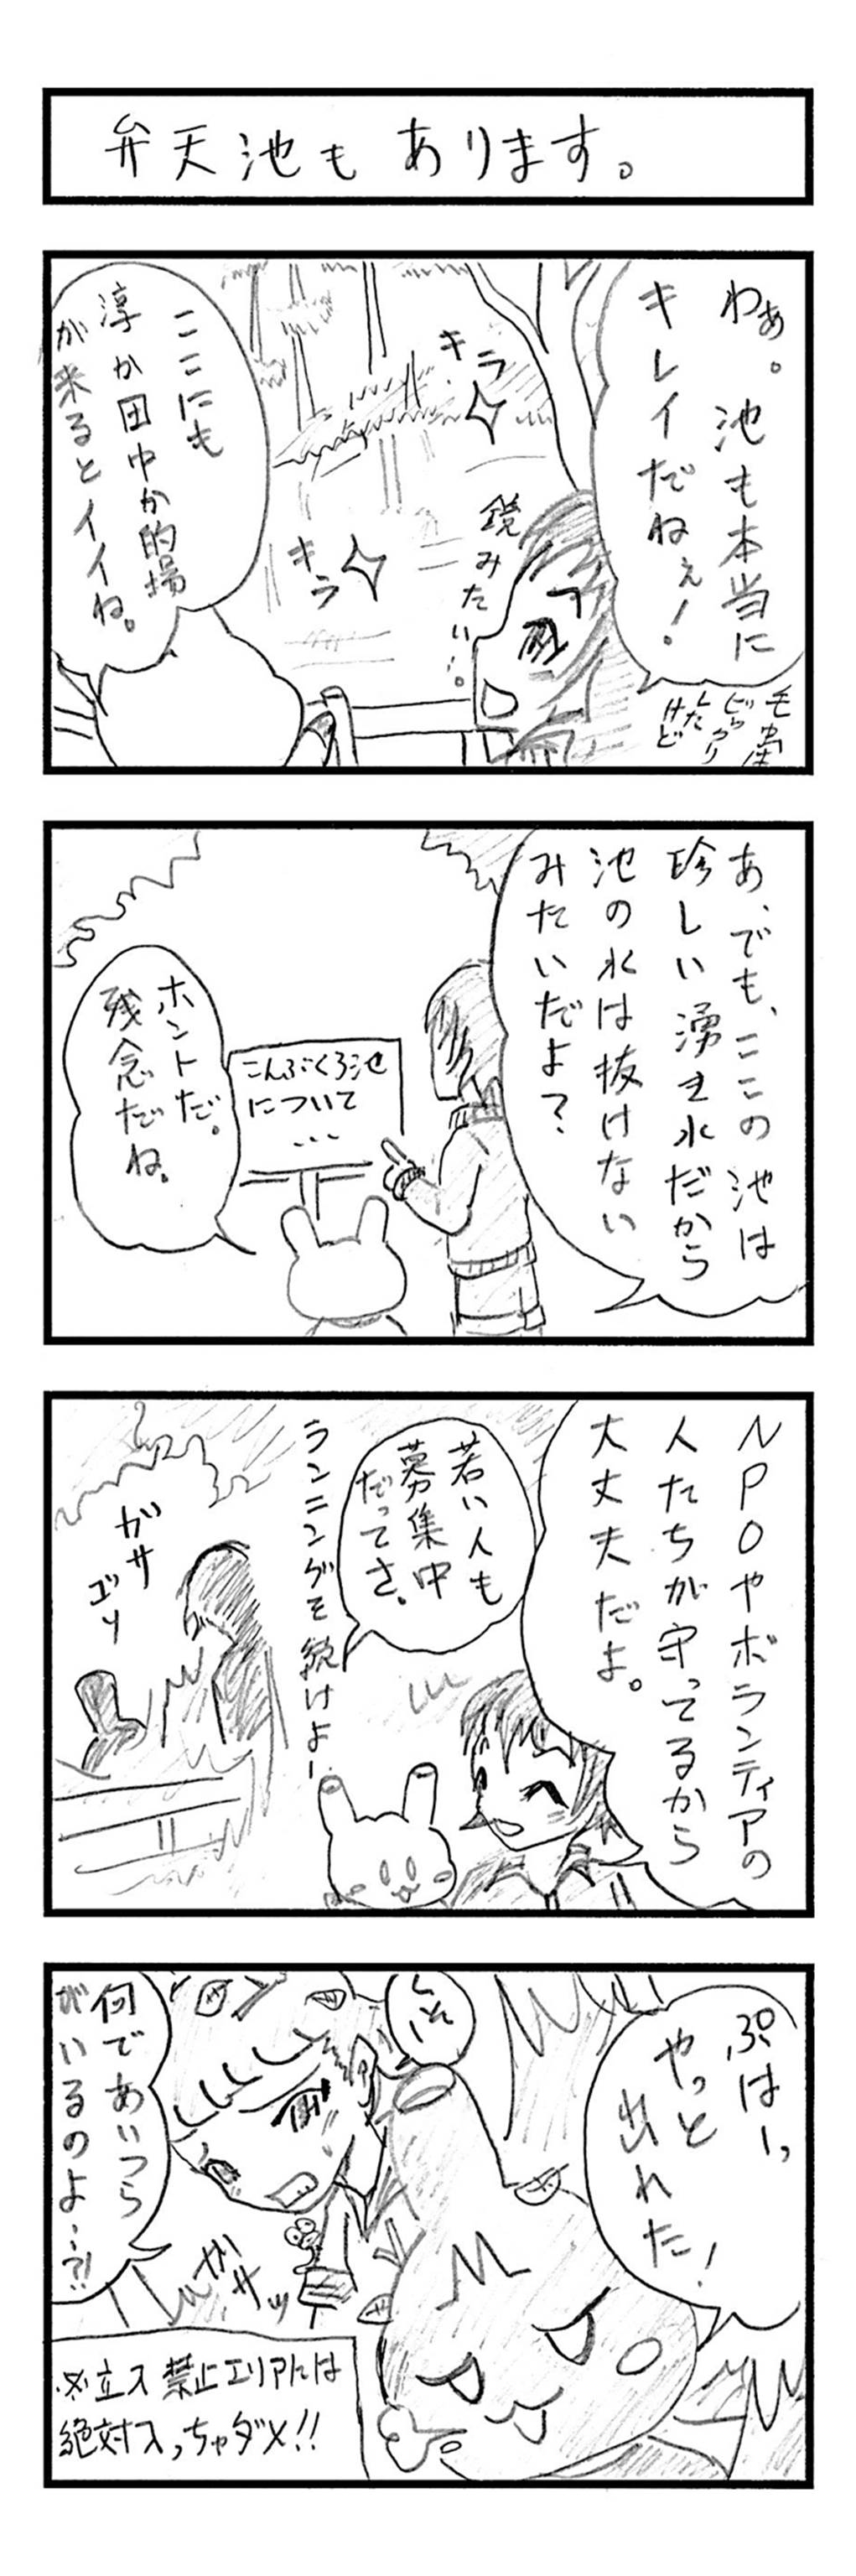 弁天池もあります。
わぁ。
池も本当に
キレイだねぇ!
毛虫
ビックリ
した
けど
キラ
鏡みたい…。
キラ
ここにも
淳か田中か的場
が来るとイイね。
あ、でも、ここの池は
珍しい湧き水だから
池の水は抜けない
みたいだよ?
こんぶくろ池
について
…
ホントだ。
残念だね。
NPOやボランティアの
人たちが守ってるから
大丈夫だよ。
若い人も
募集中
だってさ。
ランニングを続けよー
ガサ
ゴソ
ぷはーっ
やっと
出れた!
ガサッ
何であいつら
がいるのよ…?!
※立入禁止エリアには
絶対入っちゃダメ!!